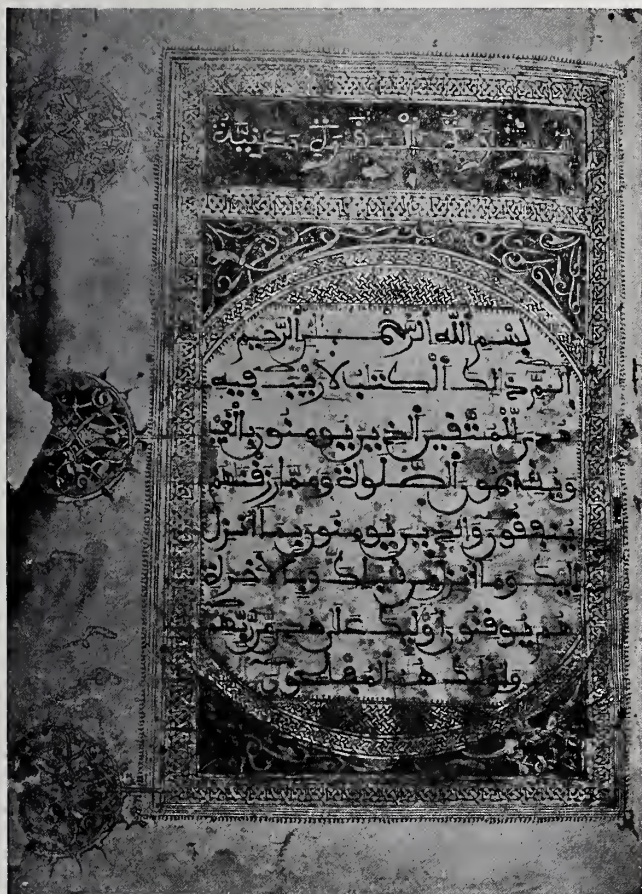 سورة البقرة مدنية
بسم الله الرحمن الرحيم
الم ذلك الكتب لا ريب فيه
هدى للمتقين الذين يومنون بالغيب
ويقيمون الصلوة ومما رزقنهم
ينفقون والذين يومنون بما أنزل
إليك وما أنزل من قبلك وبالآخرة
هم يوقنون أوليك على هدى من ربهم
وأوليك هم المفلحون